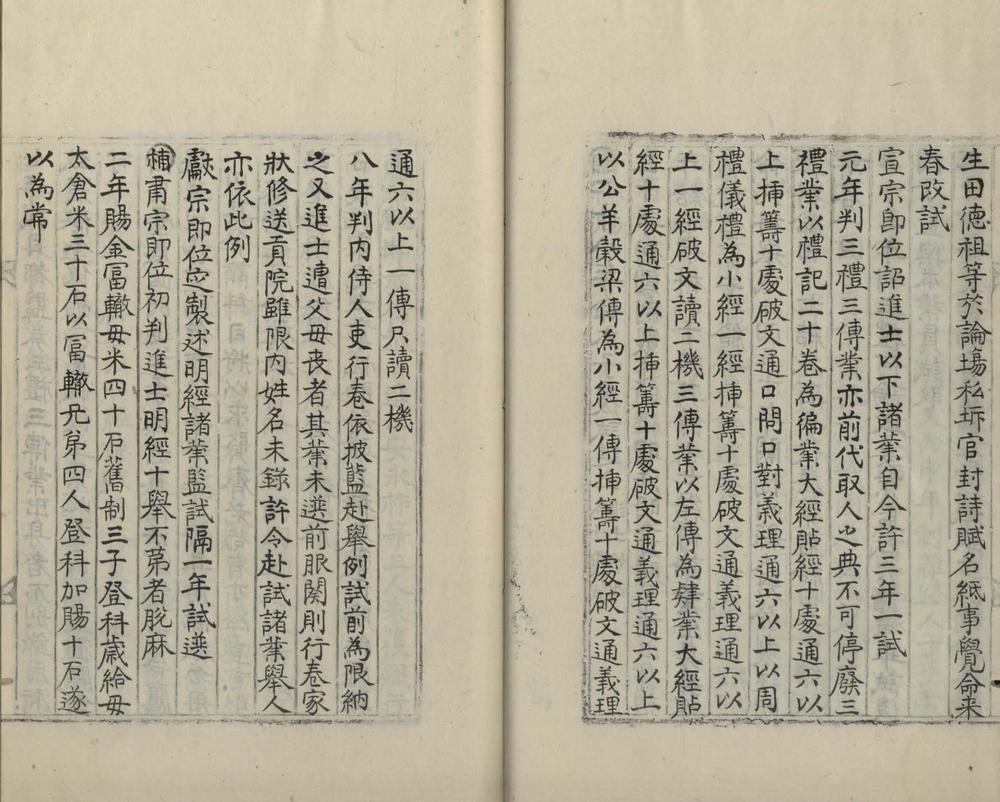 生田德祖等於論場私坼官封詩賦名紙事覺命来
春改試
宣宗卽位詔進士以下諸業自今許三年一試
元年判三禮三傳業亦前代取人之典不可停廢三
禮業以禮記二十卷為徧業大經貼經十處通六以
上揷籌十處破文通口問口對義理通六以上以周
禮儀禮為小經一經揷籌十處破文通義理通六以
上一經破文讀二機三傳業以左傳為肆業大經貼
經十處通六以上揷籌十處破文通義理通六以上
以公羊穀梁傳為小經一傳揷籌十處破文通義理
通六以上一傳只讀二機
八年判內侍人吏行卷依披藍赴舉例試前為限納
之又進士遭父母喪者其業未選前服闋則行卷家
狀修送貢院雖限內姓名未錄許令赴試諸業舉人
亦依此例
獻宗即位㝎製述明經諸業監試隔一年試選
肅宗即位初判進士明經十舉不第者脫麻
二年賜金冨轍母米四十石舊制三子登科歲給母
太倉米三十石以冨轍兄弟四人登科加賜十石遂
以為常